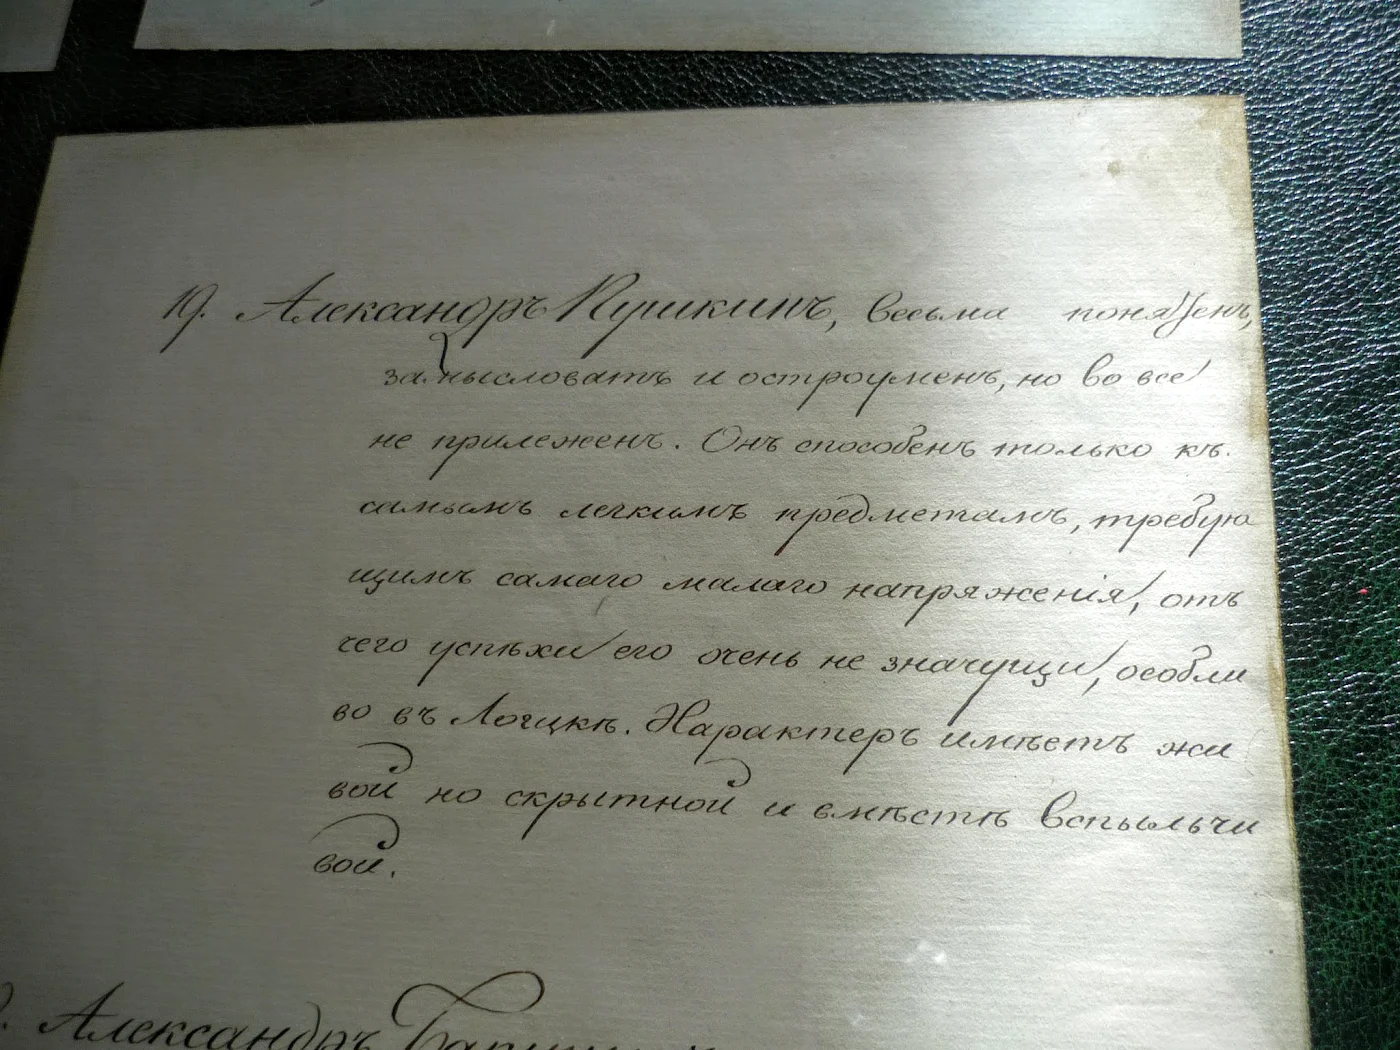 19. Александръ Пушкинъ, весьма понятенъ,
замысловатъ и остроуменъ, но во все
не прилеженъ. Онъ способенъ только къ
самымъ легкимъ предметамъ, требую
щимъ самаго малаго напряженія, отъ
чего успѣхи его очень не значущи, особли
во въ Логикѣ. Характеръ имѣетъ жи
вой но скрытной и вмѣстѣ вспыльчи
вой.
Александръ